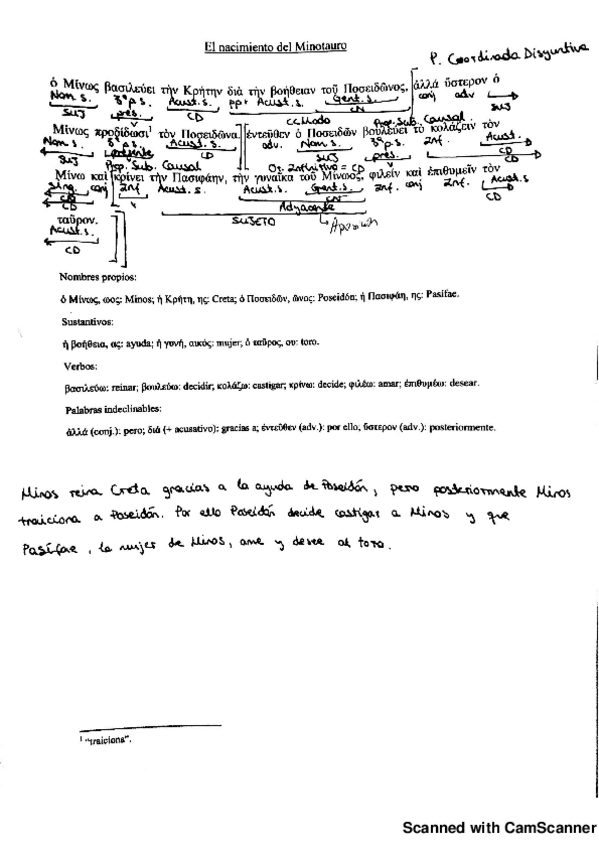 El nacimiento del Minotauro
P. Coordinada Disyuntiva
ὁ Μίνως βασιλεύει τὴν Κρήτην διὰ τὴν βοήθειαν τοῦ Ποσειδῶνος, ἀλλά ὕστερον ὁ
Nom. s. 3ª p.s. Acus t. s. pp+ Acust. s. Gent. s. conj adv
SUJ pres. CD CN SUJ
CC Modo Prop. Sub. Causal
Μίνως προδίδωσι¹ τὸν Ποσειδῶνα. ἐντεῦθεν ὁ Ποσειδῶν βουλεύει τὸ κολάζειν τὸν
Nom. s. 3ª p.s. Acust. s. adv. Nom. s. 3ª p.s. Inf. Acust.
SUJ presente CD SUJ pres. CD
Prop. Sub. Causal O. Infinitivo = CD
Μίνω καὶ κρίνει τὴν Πασιφάην, τὴν γυναῖκα τοῦ Μίνωος, φιλεῖν καὶ ἐπιθυμεῖν τὸν
Sing. conj Inf. Acust. s. Acust. s. Gent. s. Inf. conj Inf. Acust. s.
CD CN CD
Adyacente
SUJETO Aposición
ταῦρον.
Acust. s.
CD
Nombres propios:
ὁ Μίνως, ωος: Minos; ἡ Κρήτη, ης: Creta; ὁ Ποσειδῶν, ῶνος: Poseidón; ἡ Πασιφάη, ης: Pasífae.
Sustantivos:
ἡ βοήθεια, ας: ayuda; ἡ γονή, αικός: mujer; ὁ ταῦρος, ου: toro.
Verbos:
βασιλεύω: reinar; βουλεύω: decidir; κολάζω: castigar; κρίνω: decide; φιλέω: amar; ἐπιθυμέω: desear.
Palabras indeclinables:
ἀλλά (conj.): pero; διά (+ acusativo): gracias a; ἐντεῦθεν (adv.): por ello, ὕστερον (adv.): posteriormente.
Minos reina Creta gracias a la ayuda de Poseidón, pero posteriormente Minos
traiciona a Poseidón. Por ello Poseidón decide castigar a Minos y que
Pasífae, la mujer de Minos, ame y desee al toro.
¹ "traiciona".
Scanned with CamScanner